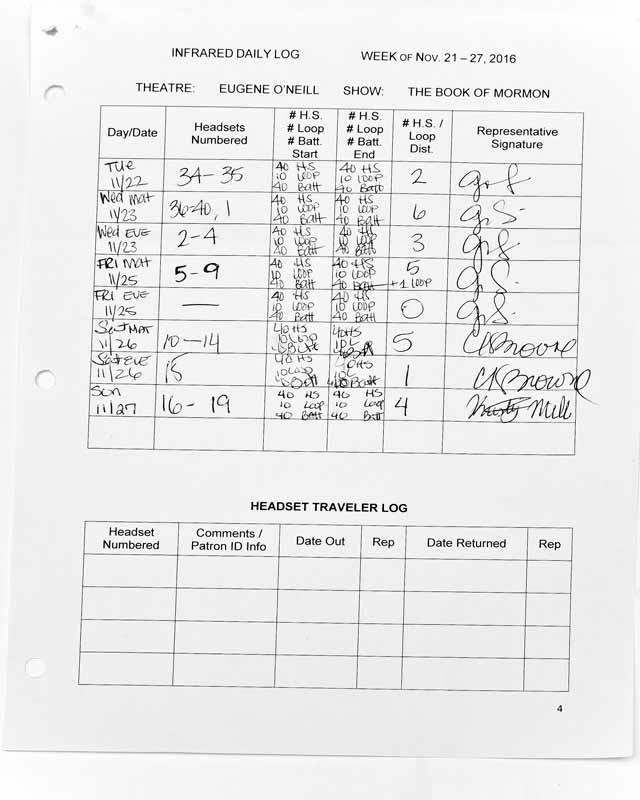 INFRARED DAILY LOG WEEK OF NOV. 21 – 27, 2016
THEATRE: EUGENE O'NEILL SHOW: THE BOOK OF MORMON
Day/Date
Headsets
Numbered
# H.S.
# Loop
# Batt.
Start
# H.S.
# Loop
# Batt.
End
# H.S. /
Loop
Dist.
Representative
Signature
TUE
11/22
34-35
40 HS
10 LOOP
40 Batt
40 HS
10 LOOP
40 Batt
2
Wed Mat
11/23
36-40, 1
40 HS
10 LOOP
40 Batt
40 HS
10 LOOP
40 Batt
6
Wed EVE
11/23
2-4
40 HS
10 LOOP
40 Batt
40 HS
10 LOOP
40 Batt
3
FRI Mat
11/25
5-9
40 HS
10 LOOP
40 Batt
40 HS
10 LOOP
40 Batt
5
+1 LOOP
FRI EVE
11/25
—
40 HS
10 LOOP
40 Batt
40 HS
10 LOOP
40 Batt
0
Sat MAT
11/26
10-14
40 HS
10 Loop
40 Batt
40 HS
10 L
40 Batt
5
Sat EVE
11/26
15
40 HS
10 Loop
40 Batt
40 HS
10 L
40 Batt
1
C Brown
Sun
11/27
16-19
40 HS
10 Loop
40 Batt
40 HS
10 Loop
40 Batt
4
HEADSET TRAVELER LOG
Headset
Numbered
Comments /
Patron ID Info
Date Out
Rep
Date Returned
Rep
4